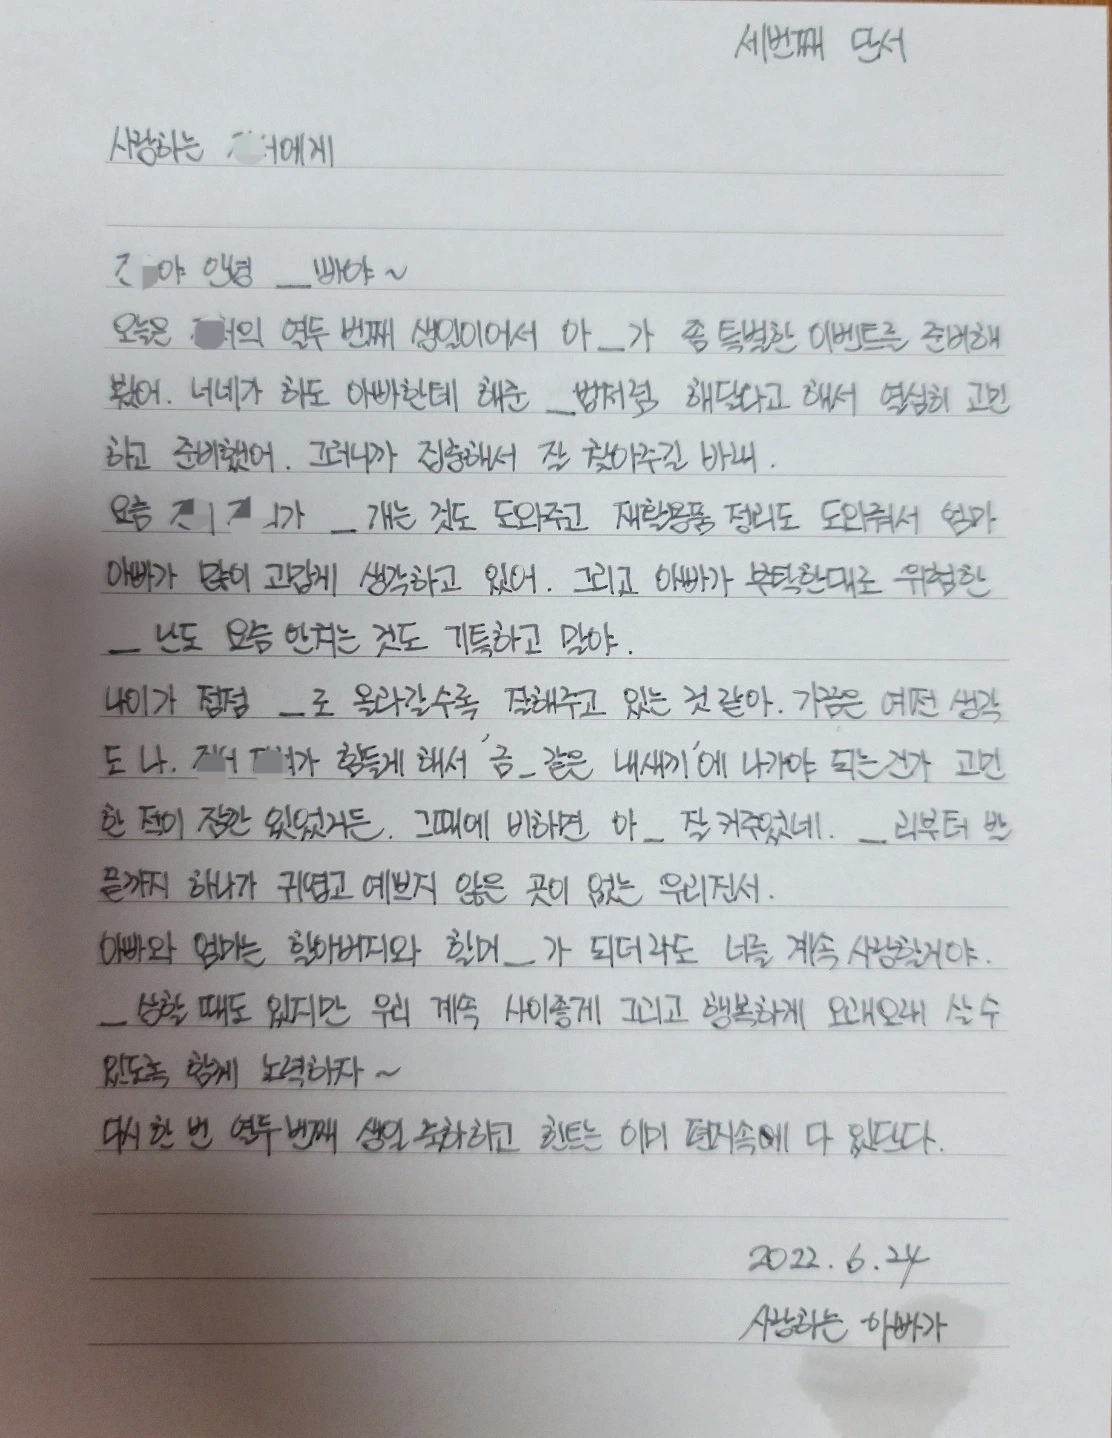 세번째 단서
사랑하는 에게
야 안녕 __빠야~
오늘은 의 열두 번째 생일이어서 아__가 좀 특별한 이벤트를 준비해
봤어. 너네가 하도 아빠한테 해준 __방처럼 해달라고 해서 열심히 고민
하고 준비했어. 그러니까 집중해서 잘 찾아주길 바래.
요즘 가 __ 개는 것도 도와주고 재활용품 정리도 도와줘서 엄마
아빠가 많이 고맙게 생각하고 있어. 그리고 아빠가 부탁한대로 위험한
__ 난도 요즘 안치는 것도 기특하고 말야.
나이가 점점 __로 올라갈수록 잘해주고 있는 것 같아. 가끔은 예전 생각
도 나. 가 힘들게 해서 '금_같은 내새끼'에 나가야 되는건가 고민
한 적이 잠깐 있었거든. 그때에 비하면 아_ 잘 커주었네. __리부터 발
끝까지 하나가 귀엽고 예쁘지 않은 곳이 없는 우리진서.
아빠와 엄마는 할아버지와 할머__가 되더라도 너를 계속 사랑할거야.
__상할 때도 있지만 우리 계속 사이좋게 그리고 행복하게 오래오래 살 수
있도록 함께 노력하자~
다시 한 번 열두 번째 생일 축하하고 힌트는 이미 편지속에 다 있단다.
2022. 6. 24
사랑하는 아빠가